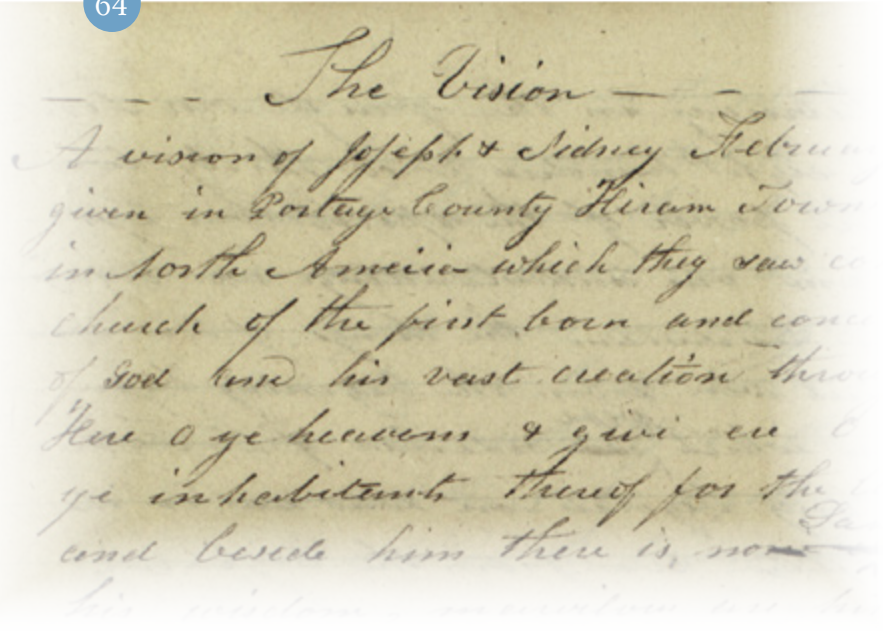 64
The Vision
A vision of Joseph & Sidney Februa
given in Portage County Hiram Town
in North America which they saw co
church of the first born and conc
of God and his vast creation thro
Here O ye heavens & give ere O
ye inhabitants thereof for the
and beside him there is none
his wisdom